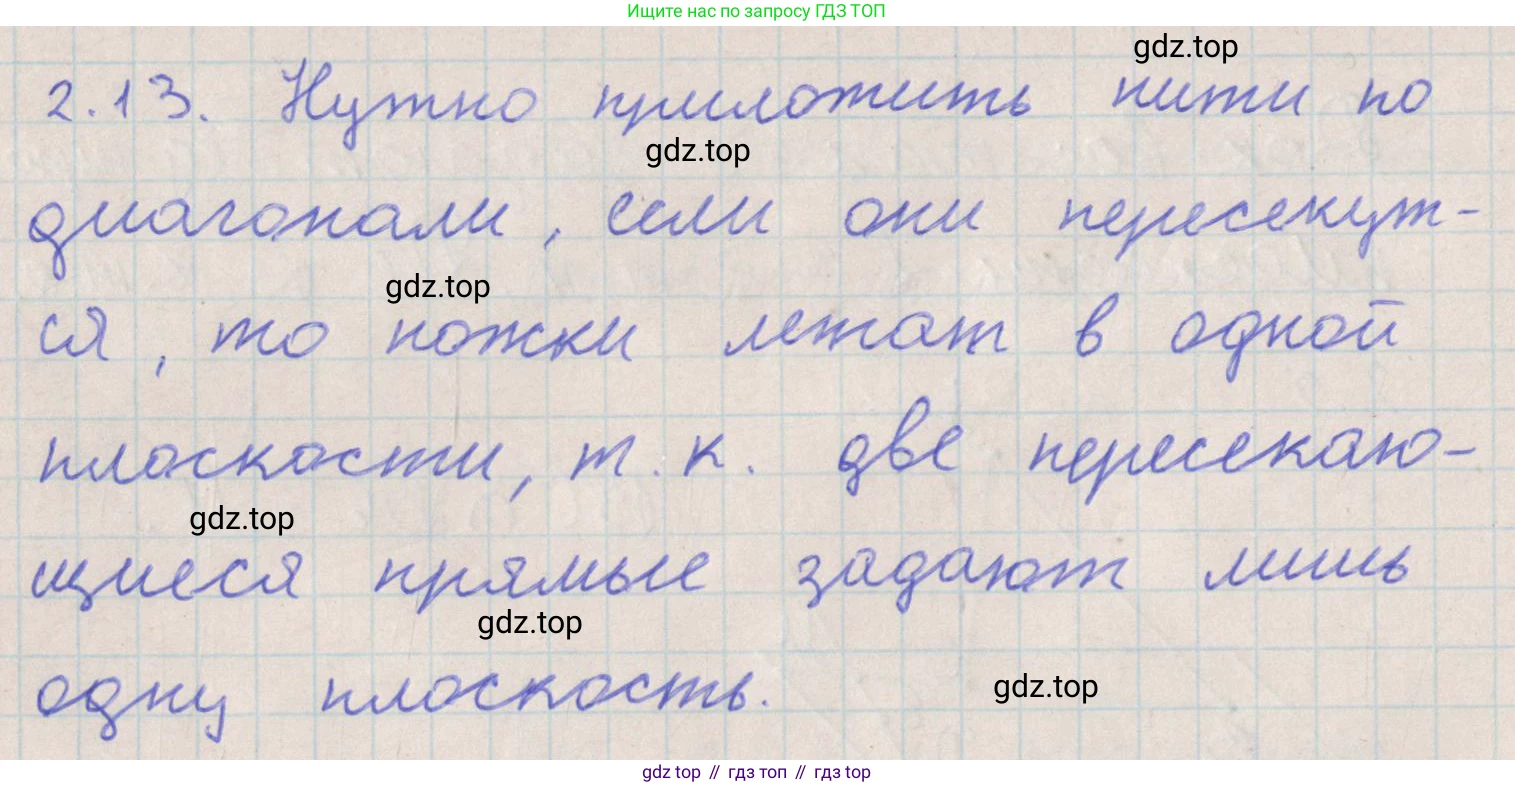 Ищите нас по запросу ГДЗ ТОП
gdz.top
2.13. Нужно приложить нити по
gdz.top
диагонали, если они пересекут-
gdz.top
ся, то ножки лежат в одной
плоскости, т.к. две пересекаю-
gdz.top
щиеся прямые задают лишь
gdz.top
одну плоскость.
gdz.top
gdz top // гдз топ // гдз top